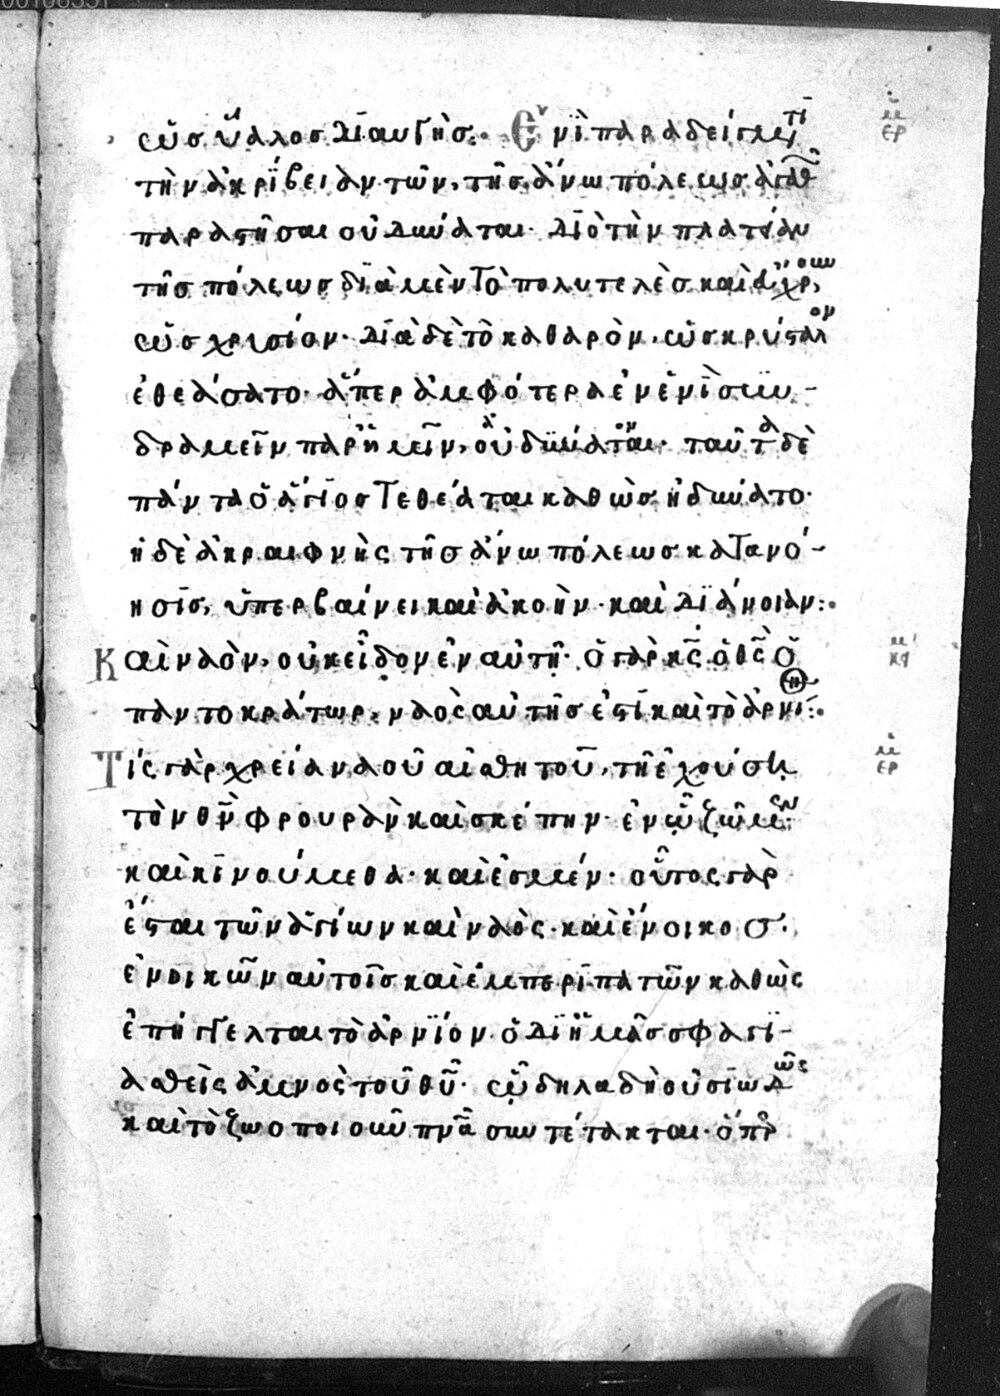 ὡς ὕαλος διαυγὴς· Ἑνὶ παραδείγματι
τὴν ἀκρίβειαν τῶν, τῆς ἄνω πόλεως ἀγαθῶν
παραστῆσαι οὐ δυνατὰι· διὸ τὴν πλατείαν
τῆς πόλεως διὰ μὲν τὸ πολυτελὲς καὶ
ὡς χρυσίον· διὰ δὲ τὸ καθαρὸν, ὡς κρύσταλλον
ἐθεάσατο· ἅπερ ἀμφότερα ἐν ἑνὶ συν-
δραμεῖν παρ ἡμῖν, ἀδύνατον· ταῦτα δὲ
πάντα ὁ ἅγιος τεθέαται καθὼς ἠδύνατο·
ἡ δὲ ἀκραιφνὴς τῆς ἄνω πόλεως κατανό-
ησις, ὑπερβαίνει καὶ ἀκοὴν· καὶ διάνοιαν:·
Καὶ ναὸν, οὐκ εἶδον ἐν αὐτῇ· ὁ γὰρ κς ὁ θς ὁ
παντοκράτωρ, ναὸς αὐτῆς ἐστὶ καὶ τὸ ἀρνίον:·
Τίς γὰρ χρεία ναοῦ αἰσθητοῦ, τῇ ἐχούσῃ
τὸν θν φρουρὰν καὶ σκέπην· ἐν ᾧ ζῶμεν
καὶ κινούμεθα· καὶ ἐσμέν· οὗτος γὰρ
ἔσται τῶν ἁγίων καὶ ναὸς· καὶ ἔνοικος·
ἐνοικῶν αὐτοῖς καὶ ἐμπεριπατῶν καθὼς
ἐπήγγελται τὸ ἀρνίον· ὁ δι ἡμᾶς σφαγι-
ασθεὶς ἀμνὸς τοῦ θυ· ᾧ δηλαδὴ οὐσιωδῶς
καὶ τὸ ζωοποιοῦν πνα συντέτακται· ὅπερ